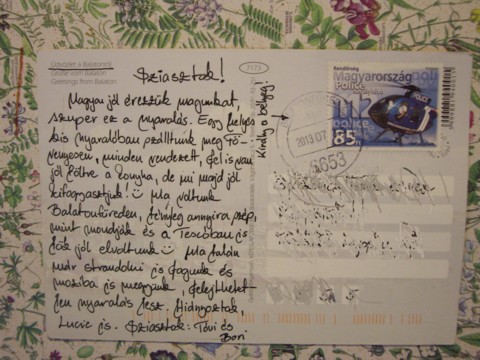 Üdvözlet a Balatonról
Grüße vom Balaton
Greetings from Balaton
7173
Sziasztok!
Nagyon jól érezzük magunkat,
szuper ez a nyaralás. Egy helyes
kis nyaralóban szálltunk meg
minden rendezett, fel is van
jól töltve a konyha, de mi majd jól
kifosztjuk! Ma voltunk
Balatonfüreden, tényleg annyira szép,
mint mondják és a Tescóban is
tök jól elvoltunk Ma talán
már strandolni is fogunk és
moziba is megyünk, felejthetet-
len nyaralás lesz. Hiányoztok
Lucie is. Sziasztok: Tóvi és
Bori
Király a bélyeg!
Rendőrség
Magyarország
Police
112
police
85
2013.07
6653